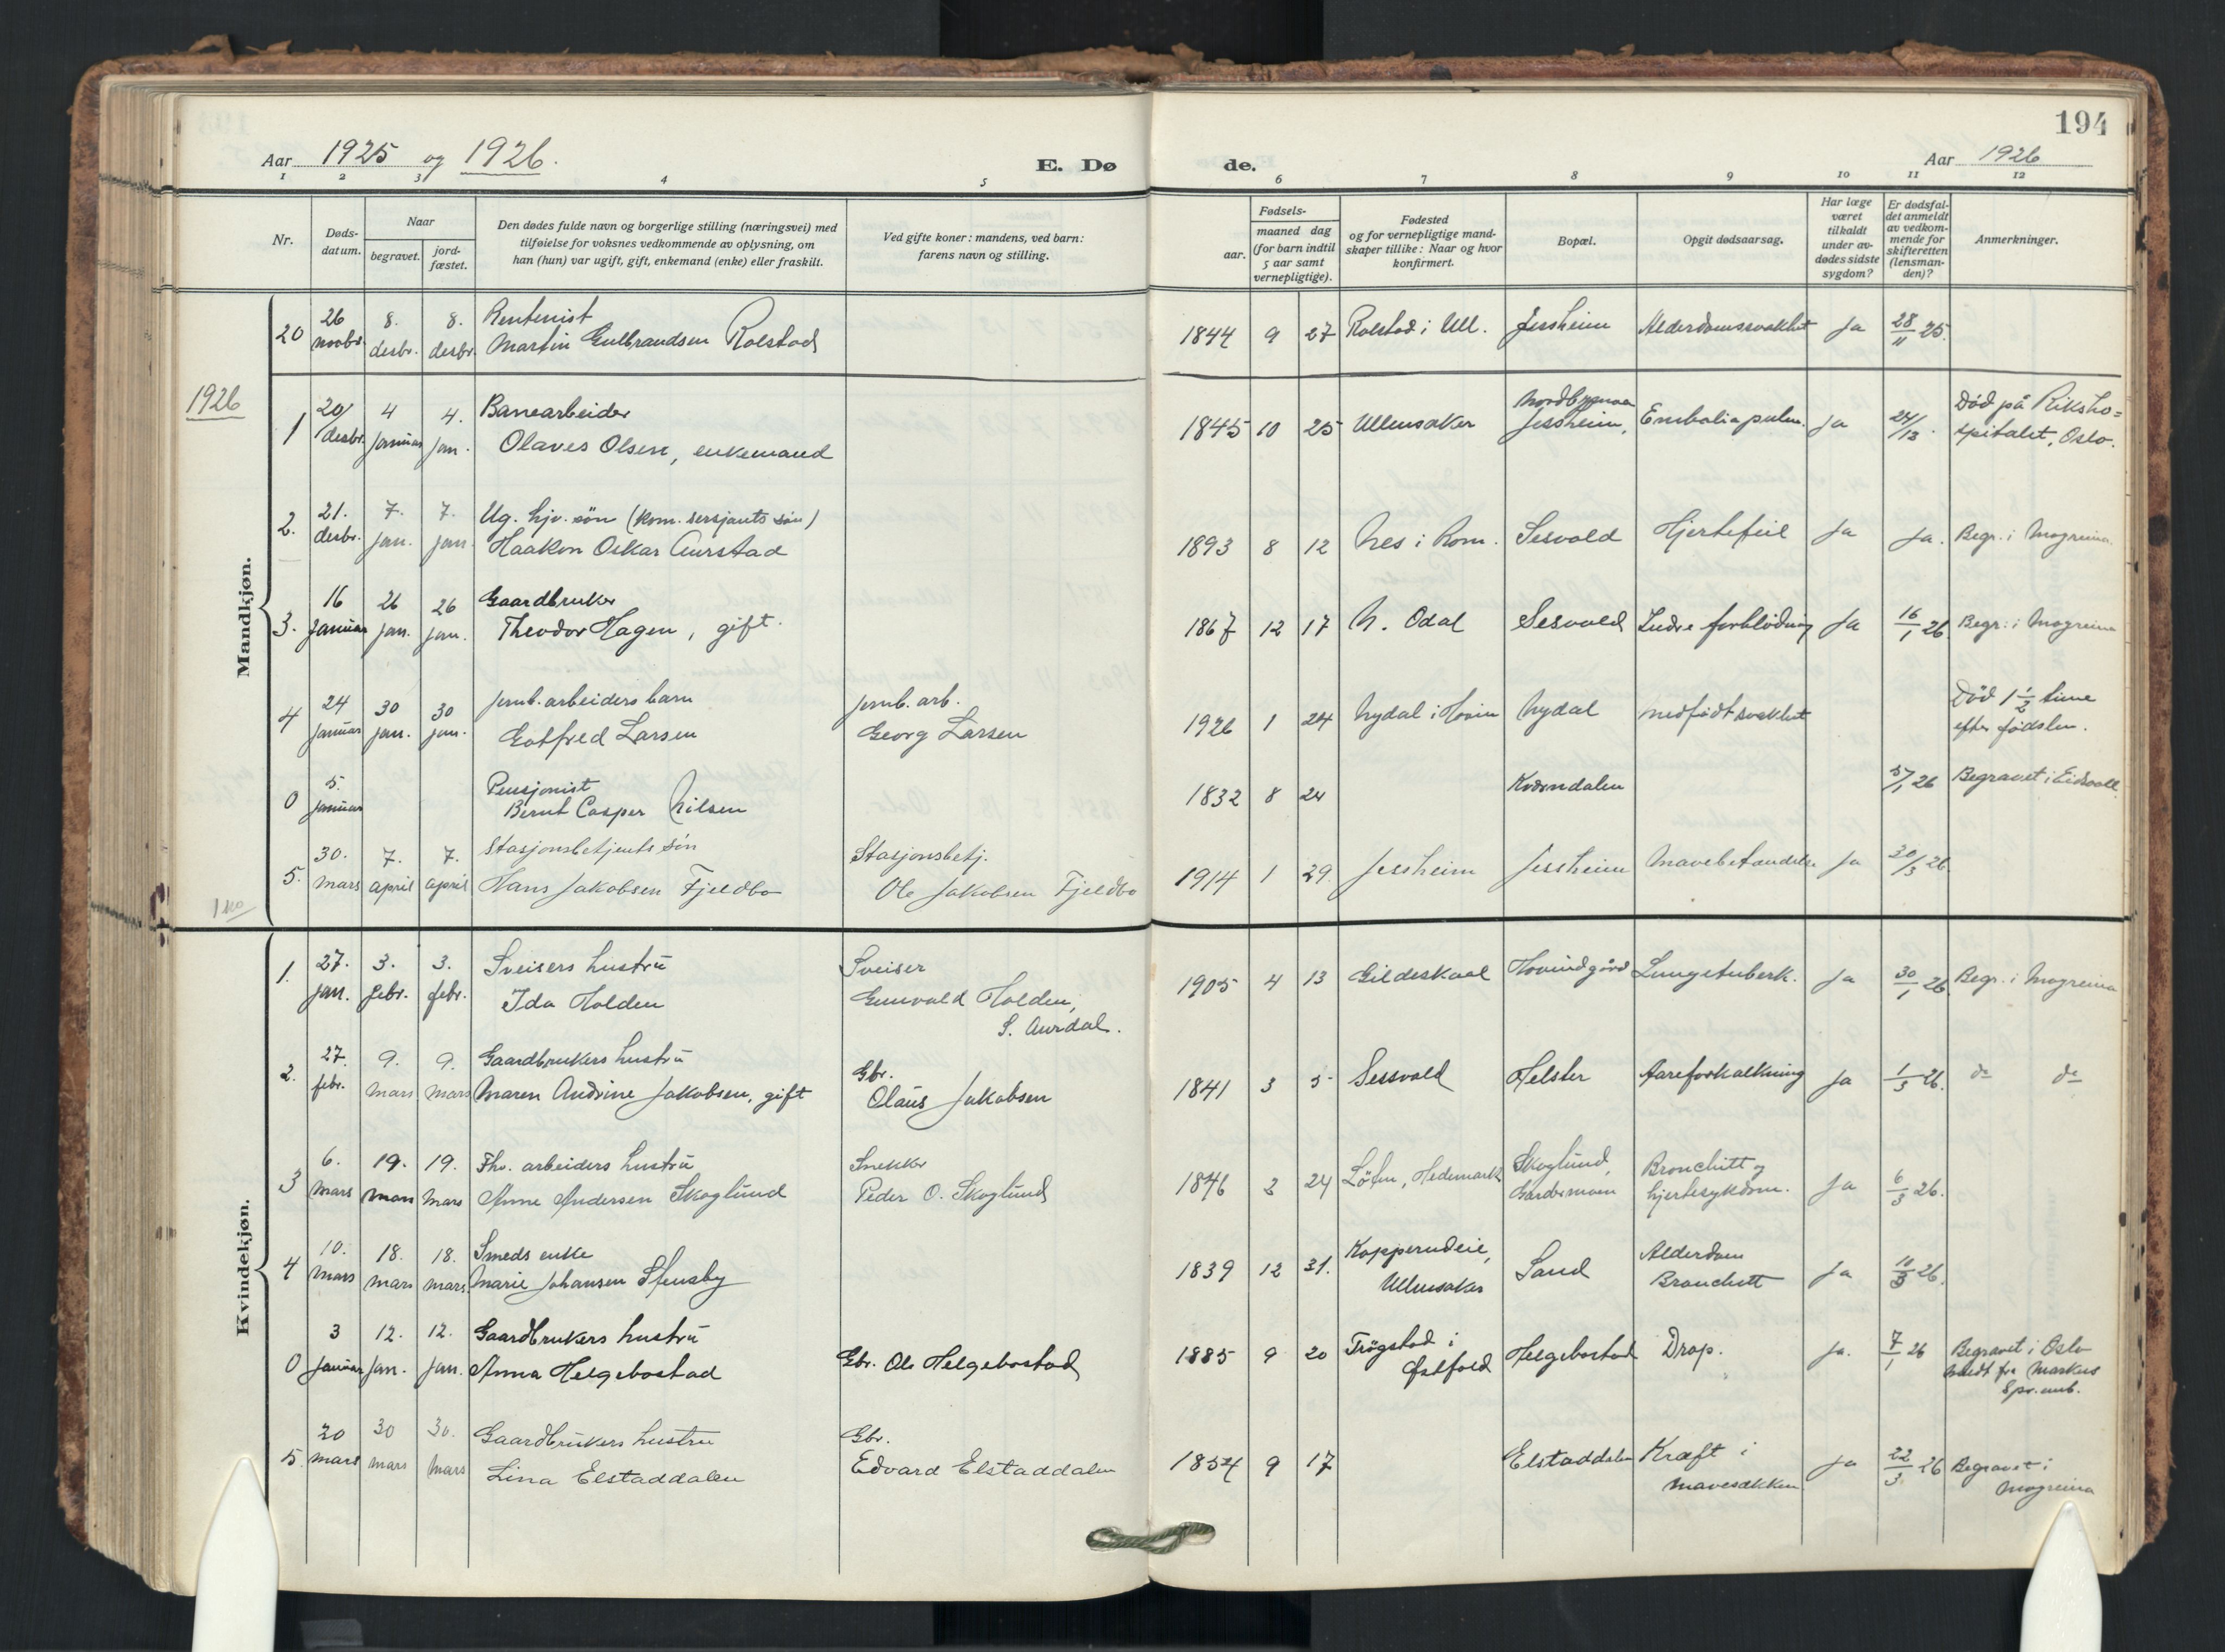 194
Aar 1925 og 1926.
E. Dø de.
Aar 1926
1 2 3 4 5 6 7 8 9 10 11 12
Nr.
Døds-
datum.
Naar
begravet.
jord-
fæstet.
Den dødes fulde navn og borgerlige stilling (næringsvei) med
tilføielse for voksnes vedkommende av oplysning, om
han (hun) var ugift, gift, enkemand (enke) eller fraskilt.
Ved gifte koner: mandens, ved barn:
farens navn og stilling.
Fødsels-
aar.
maaned dag
(for barn indtil
5 aar samt
vernepligtige).
Fødested
og for vernepligtige mand-
skaper tillike: Naar og hvor
konfirmert.
Bopæl.
Opgit dødsaarsag.
Har læge
været
tilkaldt
under av-
dødes sidste
sygdom?
Er dødsfal-
det anmeldt
av vedkom-
mende for
skifteretten
(lensman-
den)?
Anmerkninger.
Mandkjøn.
20 26 novbr. 8. desbr. 8. desbr. Rentenist
Martin Gulbrandsen Rolstad
1844 9 27 Rolstad i Ull. Jessheim Alderdomssvakhet Ja 28/11 25.
1926
1 20/desbr. 4 januar 4. jan. Banearbeider
Olaves Olsen, enkemand
1845 10 25 Ullensaker Nordbymoen
Jessheim, Embolia pulm. Ja 24/12. Död på Riksho=
spitalet, Oslo.
2. 21. desbr. 7. jan. 7. jan. Ug. hjv. søn (kom. sersjants søn)
Haakon Oskar Aurstad
1893 8 12 Nes i Rom. Sesvold Hjertefeil Ja Ja. Begr. i Mogreina.
3. 16 januar 26 jan. 26 jan. Gaardbruker
Theodor Hagen, gift.
1867 12 17 N. Odal Sesvold Indre forblödning Ja 16/1 26. Begr. i Mogreina
4 24 januar 30 jan. 30 jan. Jernb. arbeiders barn
Gotfred Larsen
Jernb. arb.
Georg Larsen
1926 1 24 Nydal i Hovin Nydal Medfödt svakhet Död 1 1/2 time
efter födslen.
0 5. januar Pensjonist
Bernt Casper Nilsen
1832 8 24 Kværndalen 5/1 26 Begravet i Eidsvoll.
5. 30. mars 7. april 7. april Stasjonsbetjents sön
Hans Jakobsen Fjeldbo
Stasjonsbetj.
Ole Jakobsen Fjeldbo
1914 1 29. Jessheim Jessheim Mavebetændelse Ja 30/3 26.
Kvindekjøn.
1. 27. jan. 3. febr. 3. febr. Sveisers hustru
Ida Holden
Sveiser
Gunvald Holden,
S. Aurdal.
1905 4 13 Gildeskaal Hovindgård Lungetuberk. Ja 30/1 26. Begr. i Mogreina
2. 27. febr. 9. mars 9. mars Gaardbrukers hustru
Maren Andrine Jakobsen, gift
Gbr.
Olaus Jakobsen
1841 3 5 Sessvold Helsler Aareforkalkning Ja 1/3 26. do do
3 6. mars 19. mars 19. mars Fhv. arbeiders hustru
Anne Andersen Skoglund
Snekker
Peder O. Skoglund
1846 2 24 Löten, Hedemark Skoglund,
Gardermoen Bronchitt og
hjertesykdom. Ja 6/3 26.
4 10. mars 18. mars 18. mars. Smeds enke
Marie Johansen Stensby
1839 12 31. Kopperudeie,
Ullensaker Sand Alderdom
Bronchitt Ja 10/3 26.
0 3 januar 12. jan. 12. jan. Gaardbrukers hustru
Anna Helgebostad
Gbr. Ole Helgebostad
1885 9 20 Trögstad i
Østfold Helgebostad Drap. Ja. 7/1 26 Begravet i Oslo
meldt fra Markus
Spr. emb.
5. 20 mars 30 mars 30. mars Gaardbrukers hustru
Lina Elstaddalen
Gbr.
Edvard Elstaddalen
1854 9 17 Elstaddalen Kræft i
mavesækken Ja 22/3 26 Begravet i
Mogreina